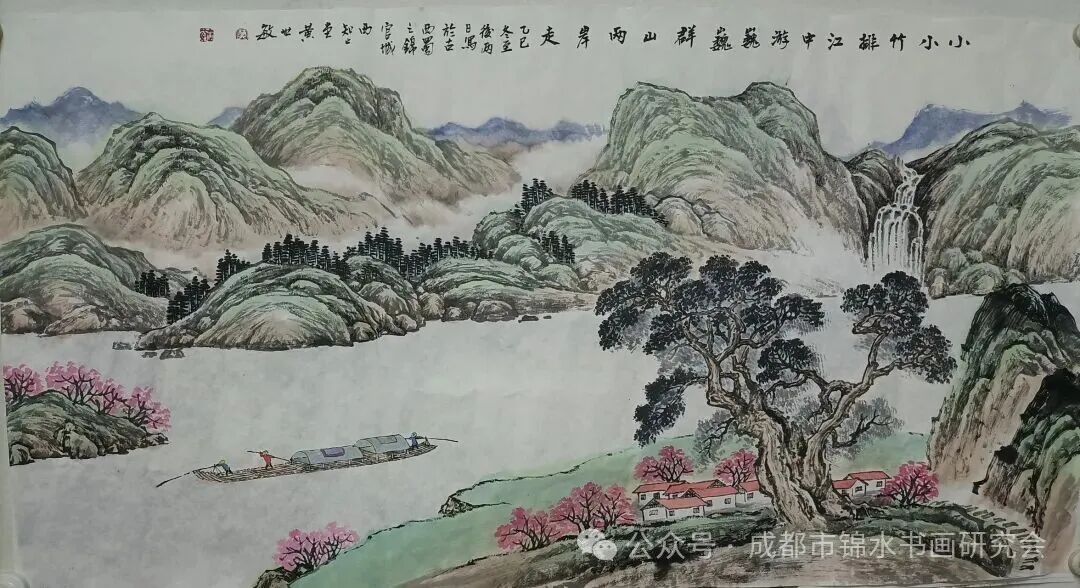 小小竹排江中游巍巍群山两岸走
乙巳
冬至
後两
日写
於古
西蜀
之锦
官城
西
知止
堂
黄
世
敏
公众号 · 成都市锦水书画研究会